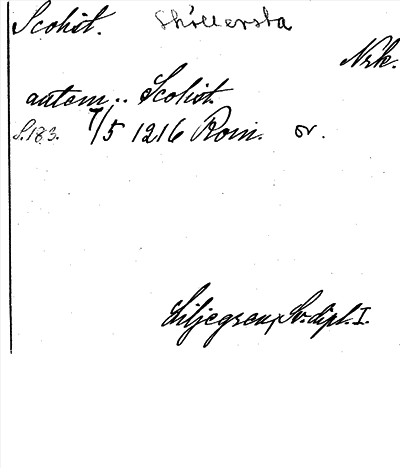 Scolist. Sköllersta
Nrk.
autem .. Scolist.
S. 183. 7/5 1216 Rom. or.
Liljegren, Sv. dipl. I.